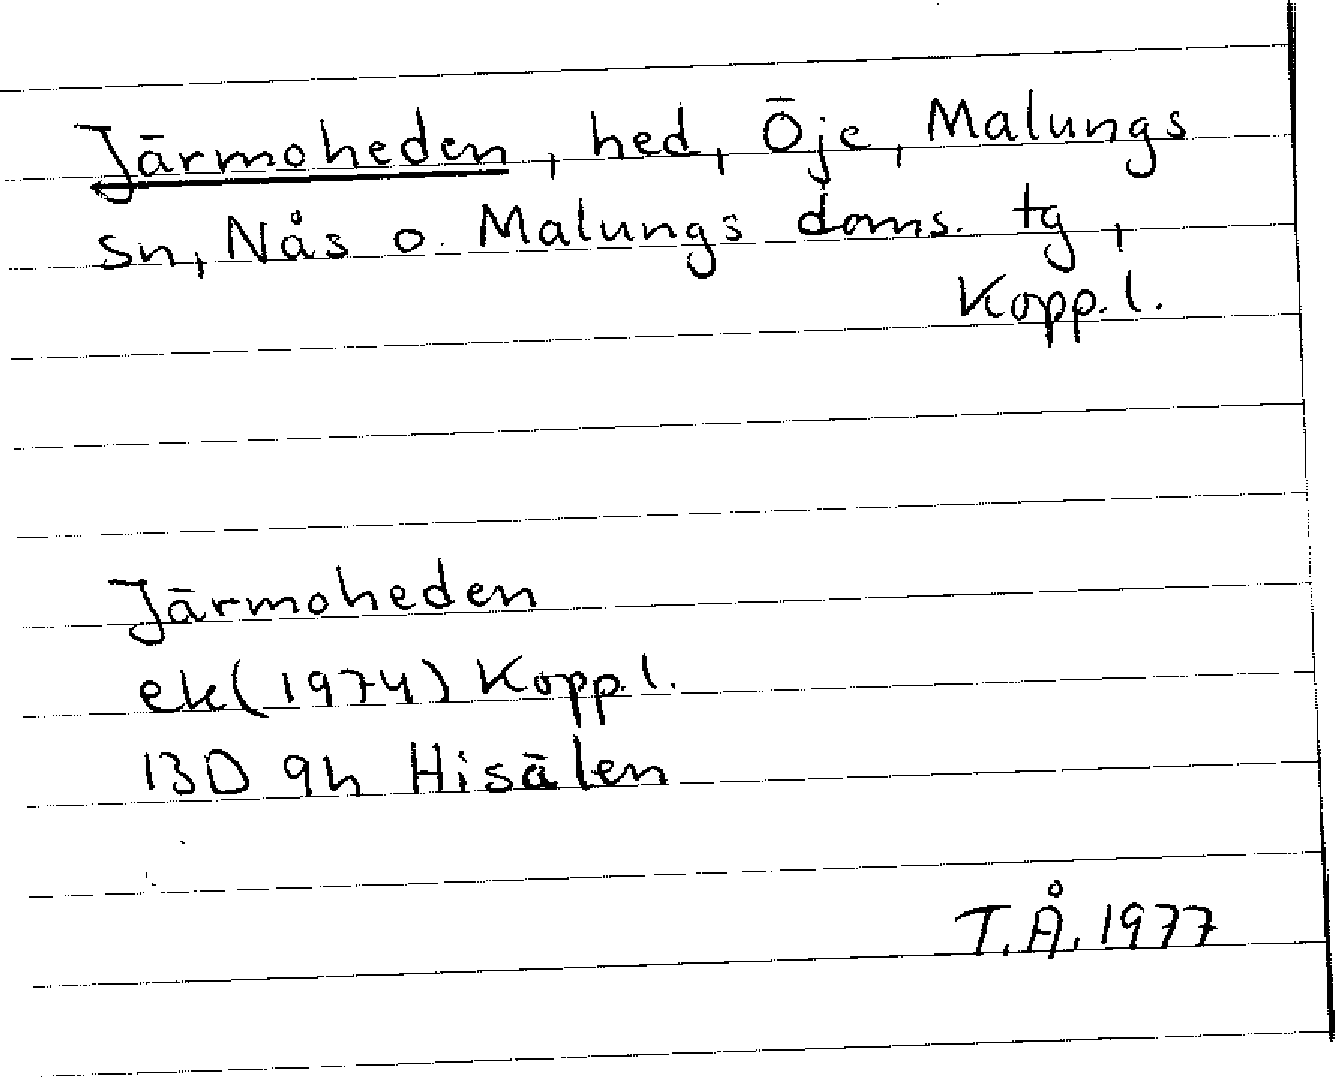 Järmoheden, hed, Öje, Malungs
sn, Nås o. Malungs doms. tg,
Kopp. l.
Järmoheden
ek (1974) Kopp. l.
13D 9h Hisälen
T.Å. 1977